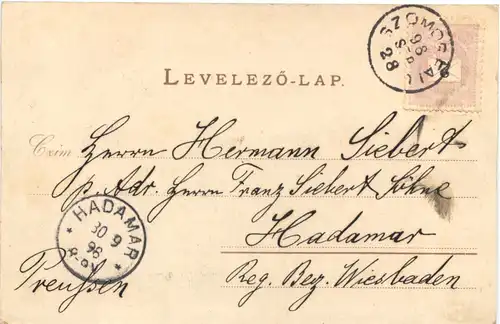 98
28
LEVELEZŐ-LAP.
Czim Herrn Hermann Siebert
p. Adr. Herrn Franz Siebert Söhne
Hadamar
Reg. Bez. Wiesbaden
Preussen
* HADAMAR *
30 9
98